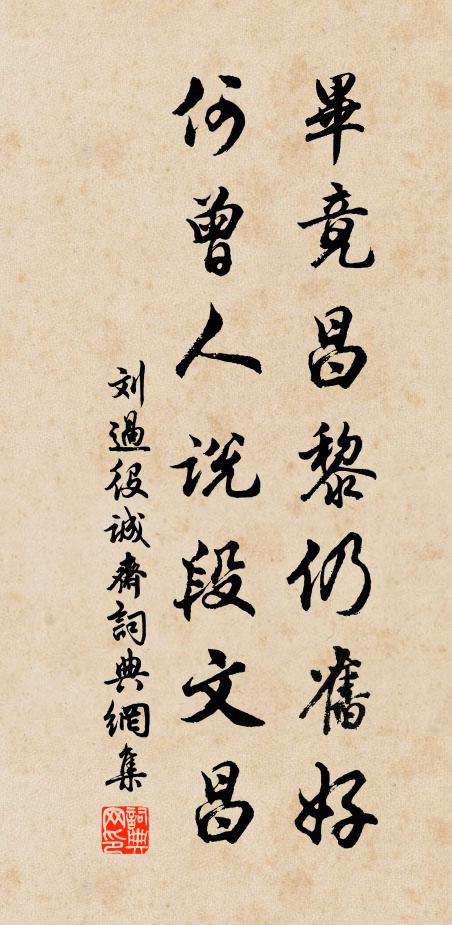 畢竟昌黎仍舊好
何曾人說段文昌
刘過役誠齋詞典網集
詞典网印